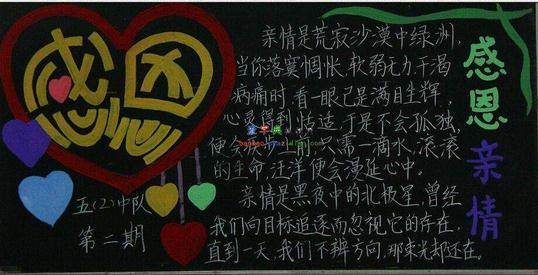 感恩
五(2)中队
第二期
亲情是荒寂沙漠中绿洲,
当你落寞惆怅,软弱无力,干渴
病痛时,看一眼已是满目生辉,
心灵得到 于是不会孤独,
便会 只需一滴水,滚滚
的生命汪洋便会漫延心中。
亲情是黑夜中的北极星,曾经
我们向目标追逐而忽视它的存在,
直到一天,我们不辨方向,那束光却还在。
感恩亲情